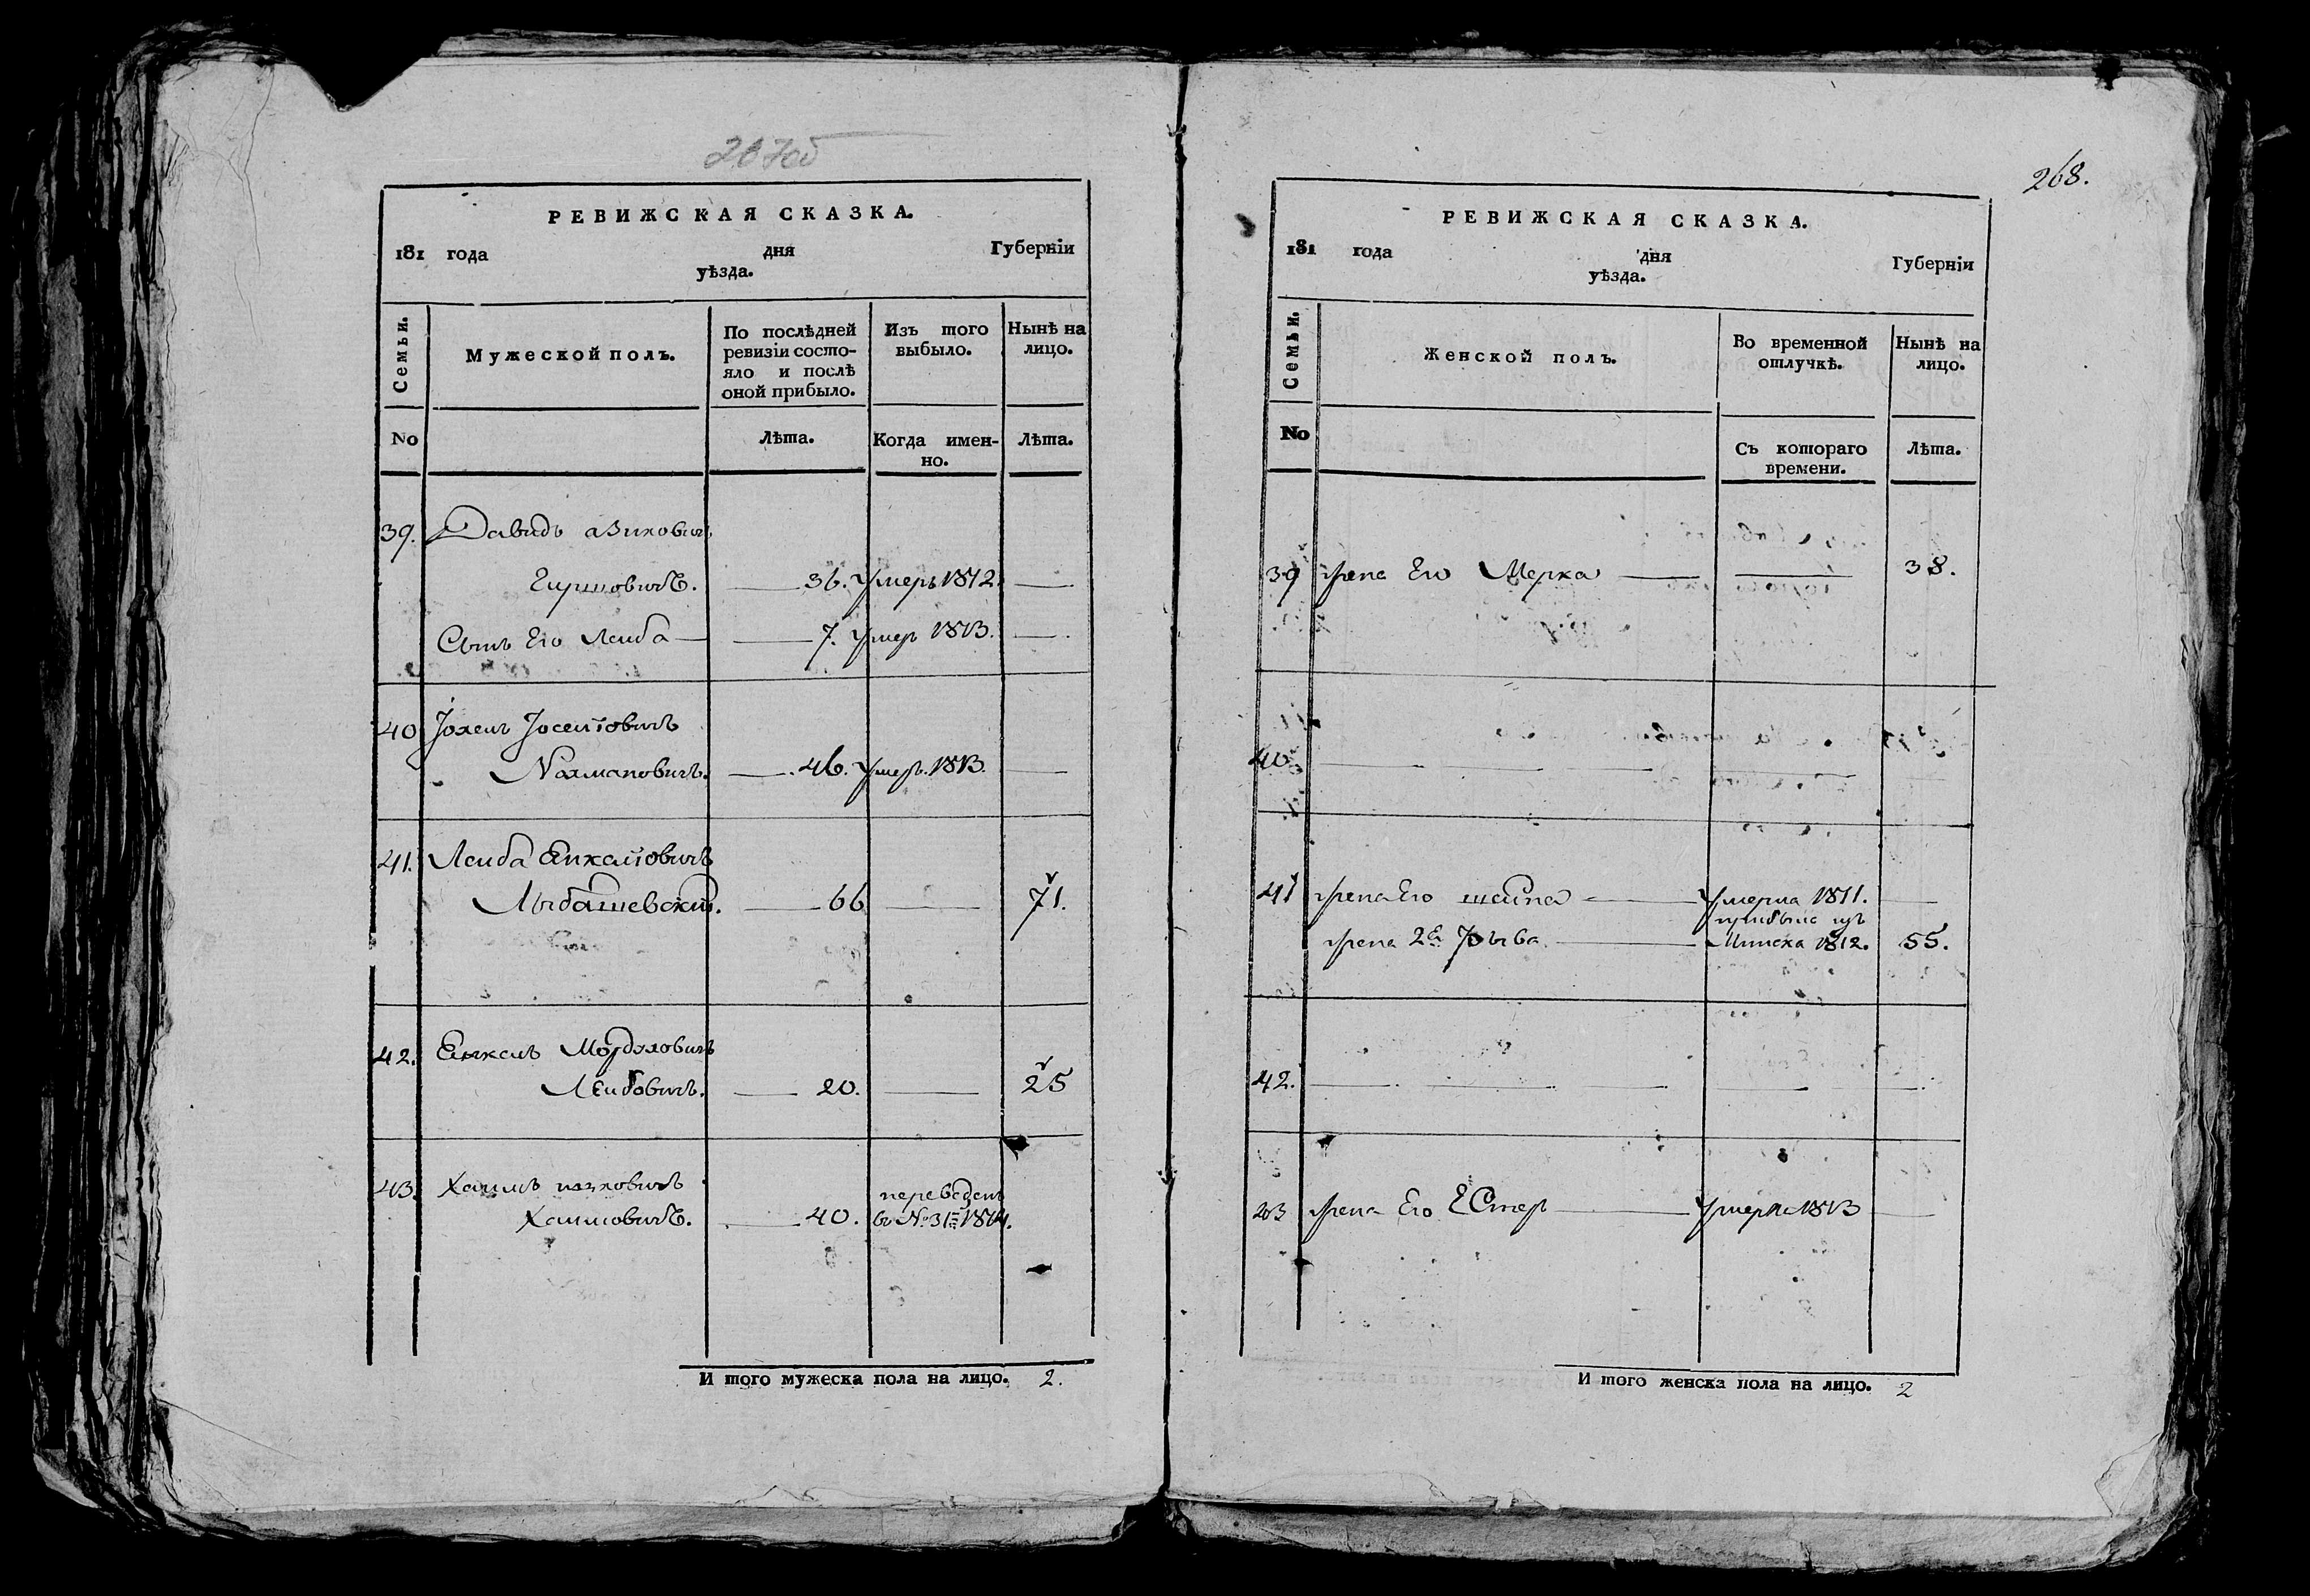 267об
РЕВИЖСКАЯ СКАЗКА.
181 года дня Губернїи
уѣзда.
Семьи. Мужеской полъ. По послѣдней ревизїи состояло и послѣ оной прибыло. Изъ того выбыло. Нынѣ на лицо.
No Лѣта. Когда именно. Лѣта.
39. Давидъ
Гиршовичъ. 36. умеръ 1812.
Сынъ Его Леиба 7. умеръ 1813.
40 Іоселевичъ
Нахмановичъ. 46. умеръ. 1813.
41. Леиба Янкелевичъ
66 71.
42. Янкель Мордуховичъ
Леибовичъ. 20. 25
43. Хаимъ ицковичъ переведенъ
Хаимовичъ. 40. в №. 31й 1814.
И того мужеска пола на лицо. 2.
268.
РЕВИЖСКАЯ СКАЗКА.
181 года дня Губернїи
уѣзда.
Семьи. Женской полъ. Во временной отлучкѣ. Нынѣ на лицо.
No Съ котораго времени. Лѣта.
39 жена Его Мерка 38.
40.
41 жена Его шейна умерла 1811.
прибыла изъ
жена 2я Минска 1812. 55.
42.
43 жена Его Естер умерла 1813
И того женска пола на лицо. 2